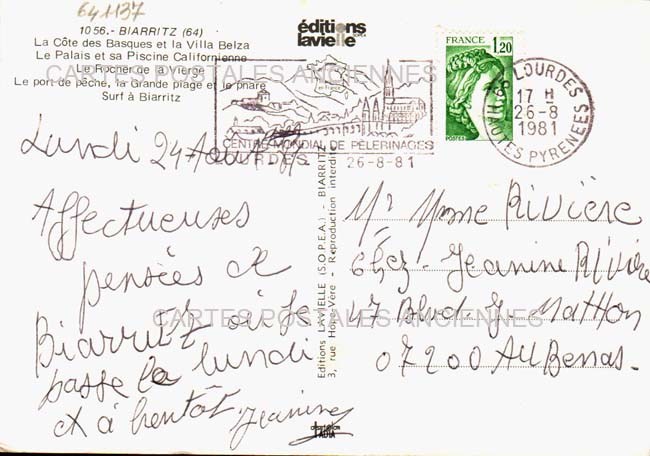 641137
1056.- BIARRITZ (64)
La Côte des Basques et la Villa Belza
Le Palais et sa Piscine Californienne
Le Rocher de la Vierge
Le port de pêche, la Grande plage et le phare
Surf à Biarritz
éditions
lavielle
CARTES POSTALES ANCIENNES
CENTRE MONDIAL DE PÈLERINAGES
LOURDES
26-8-81
FRANCE
1,20
POSTES
LOURDES
17 H
26-8
1981
HAUTES PYRENEES
Lundi 24 Août
Affectueuses
pensées de
Biarritz où je
passe le lundi
et à bientôt Jeanine
Editions LAVIELLE (S.O.P.E.A.) BIARRITZ
3, rue Hope-Vère - Reproduction interdite
Mr Mme Rivière
chez Jeanine Rivière
47 Blvd J. Mathon
07200 Aubenas.
CARTES POSTALES ANCIENNES